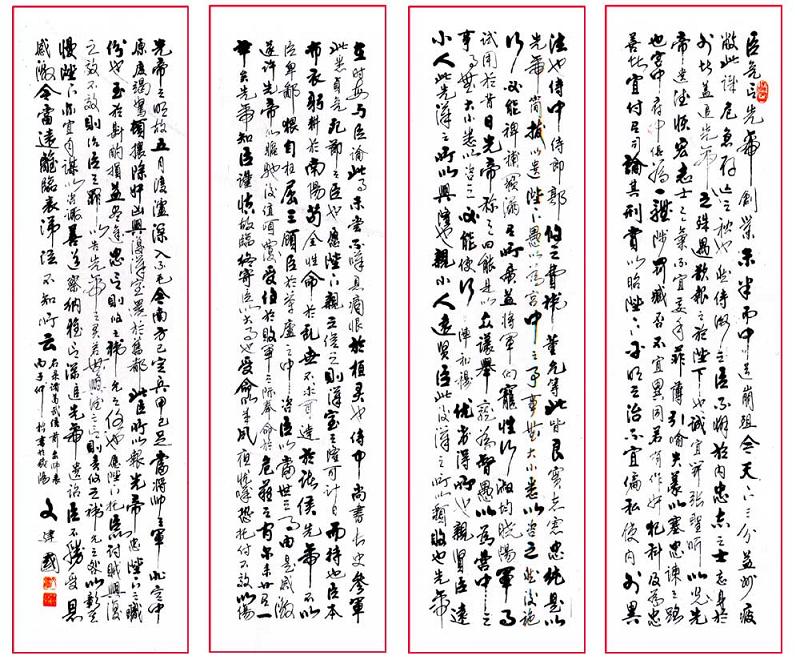 臣亮言先帝創業未半而中道崩殂今天下三分益州疲
敝此誠危急存亡之秋也然侍衛之臣不懈於內忠志之士忘身於
外者蓋追先帝之殊遇欲報之於陛下也誠宜開張聖聽以光先
帝遺德恢宏志士之氣不宜妄自菲薄引喻失義以塞忠諫之路
也宮中府中俱為一體陟罰臧否不宜異同若有作奸犯科及為忠
善者宜付有司論其刑賞以昭陛下平明之治不宜偏私使內外異
法也侍中侍郎郭攸之費禕董允等此皆良實志慮忠純是以
先帝簡拔以遺陛下愚以為宮中之事事無大小悉以咨之然後施
行必能裨補闕漏有所廣益將軍向寵性行淑均曉暢軍事
試用於昔日先帝稱之曰能是以眾議舉寵為督愚以為營中之
事事無大小悉以咨之必能使行陣和穆優劣得所也親賢臣遠
小人此先漢之所以興隆也親小人遠賢臣此後漢之所以傾頹也先帝
在時每與臣論此事未嘗不嘆息痛恨於桓靈也侍中尚書長史參軍
此悉貞亮死節之臣也願陛下親之信之則漢室之隆可計日而待也臣本
布衣躬耕於南陽苟全性命於亂世不求聞達於諸侯先帝不以
臣卑鄙猥自枉屈三顧臣於草廬之中咨臣以當世之事由是感激
遂許先帝以驅馳後值傾覆受任於敗軍之際奉命於危難之間爾來廿有一
年矣先帝知臣謹慎故臨終寄臣以大事也受命以來夙夜憂嘆恐托付不效以傷
先帝之明故五月渡瀘深入不毛今南方已定兵甲已足當獎帥三軍北定中
原庶竭駑鈍攘除奸凶興復漢室還於舊都此臣所以報先帝忠陛下之職
份也至於斟酌損益盡進忠言則攸之禕允之任也願陛下托臣以討賊興復
之效不效則治臣之罪以告先帝之靈若無興德之言則責攸之禕允之咎以彰其
慢陛下亦宜自謀以咨諏善道察納雅言深追先帝遺詔臣不勝受恩
感激今當遠離臨表涕泣不知所云
右录諸葛武侯前出師表
丙子仲